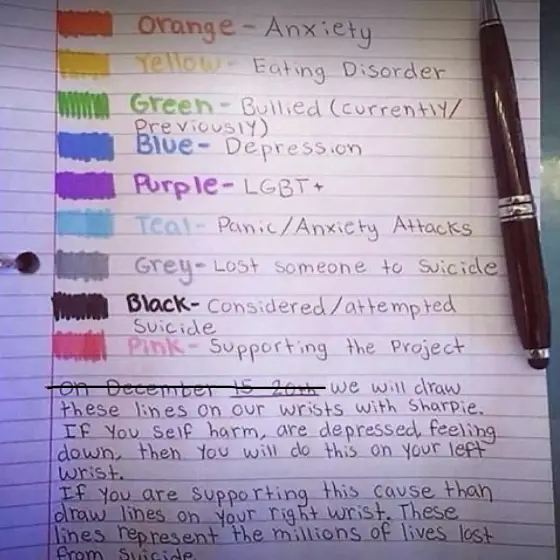 Orange - Anxiety
Yellow - Eating Disorder
Green - Bullied (currently/
Previously)
Blue - Depression
Purple - LGBT+
Teal - Panic/Anxiety Attacks
Grey - Lost someone to Suicide
Black - Considered/attempted
Suicide
Pink - Supporting the Project
On December 15 20th we will draw
these lines on our wrists with Sharpie.
If you self harm, are depressed, feeling
down, then you will do this on your left
wrist.
If you are supporting this cause than
draw lines on your right wrist. These
lines represent the millions of lives lost
from suicide.